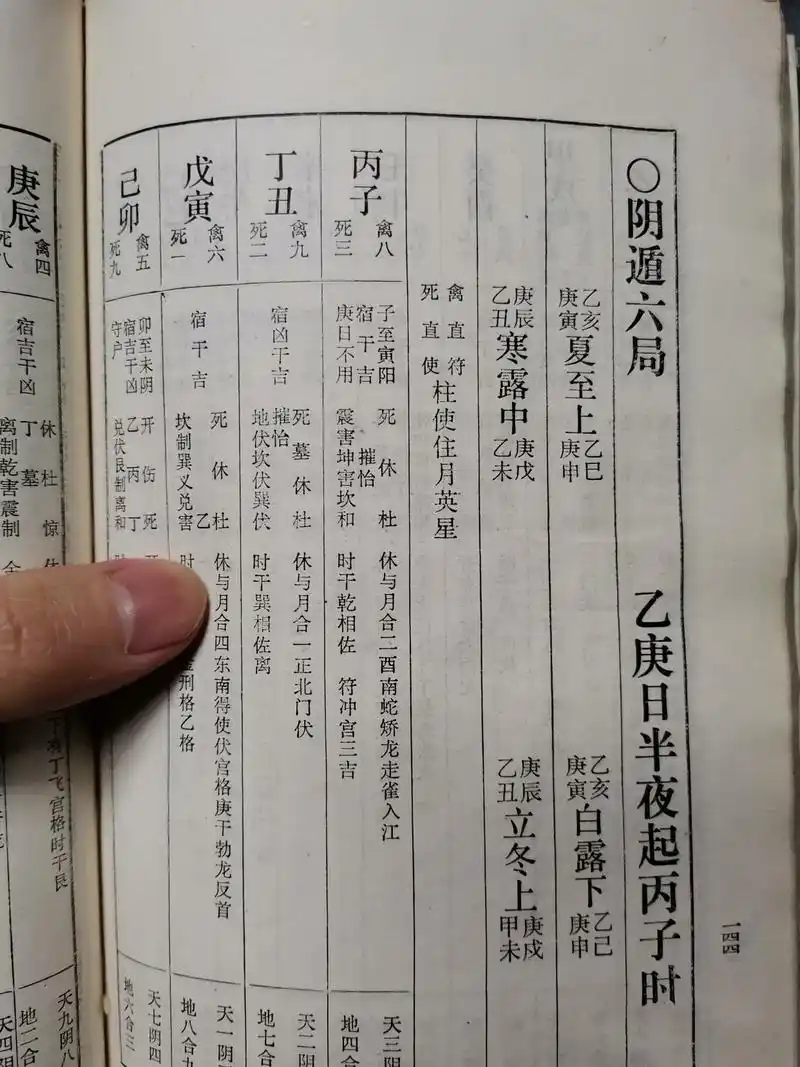 ○阴遁六局 乙庚日半夜起丙子时
乙亥
庚寅
夏至上
乙巳
庚申
乙亥
庚寅
白露下
乙己
庚申
庚辰
乙丑
寒露中
庚戌
乙未
庚辰
乙丑
立冬上
庚戌
甲未
禽直符
死直使
柱使住月英星
丙子
禽八
死三
子至寅阳
宿干吉
庚日不用
死休杜
摧怡
震害坤害坎和
休与月合二酉南蛇矫龙走雀入江
时干乾相佐 符冲宫三吉
天三阴
地四合
丁丑
禽九
死二
宿凶干吉
死墓休杜
摧怡
地伏坎伏巽伏
休与月合一正北门伏
时干巽相佐离
天二阴
地七合
戊寅
禽六
死一
宿干吉
死休杜
乙
坎制巽义兑害
休与月合四东南得使伏宫格庚干勃龙反首
时
刑格乙格
天一阴
地八合九
己卯
禽五
死九
卯至未阴
宿吉干凶
守户
开伤死
乙丙丁
兑伏艮制离和
天七阴四
地六合三
庚辰
禽四
死八
宿吉干凶
休杜惊
丁墓
离制乾害震制
丁飞宫格时干艮
天九阴八
地二合
天四阴
一四四